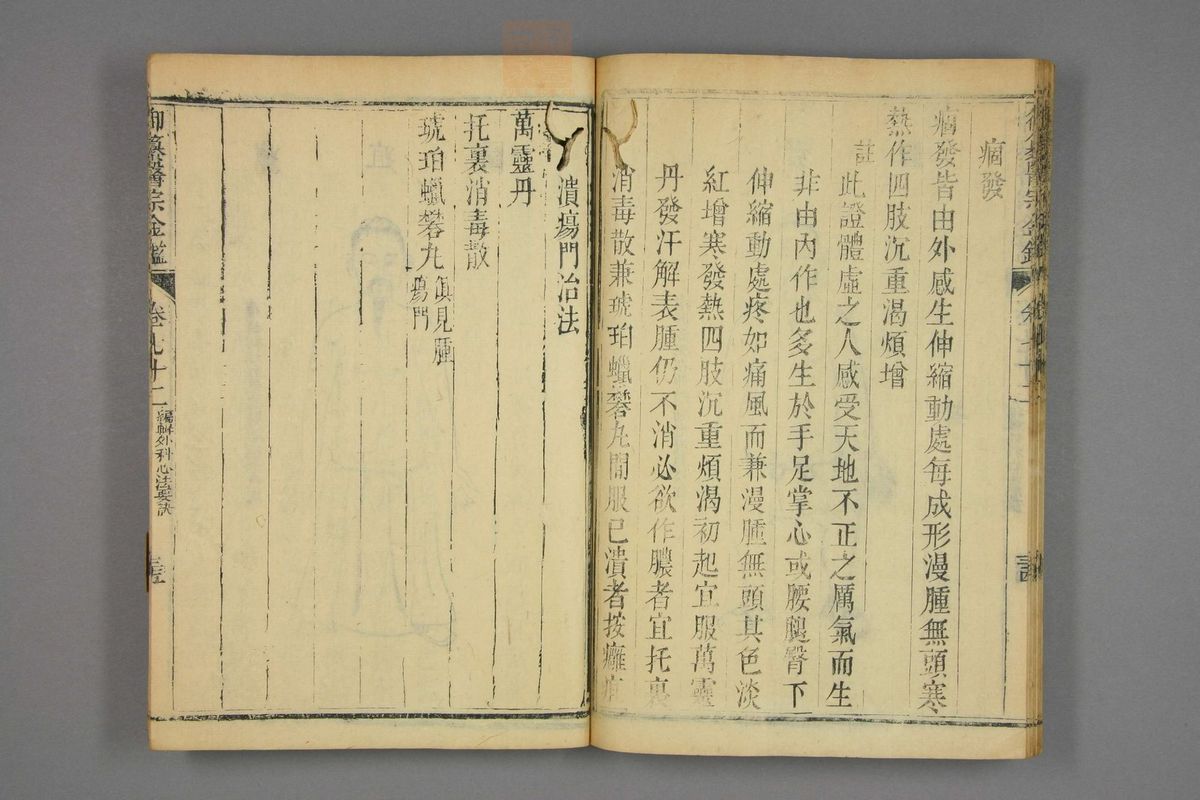 痼發
痼發皆由外感生伸縮動處每成形漫腫無頭寒
熱作四肢沉重渴煩增
註
此證體虛之人感受天地不正之厲氣而生
非由內作也多生於手足掌心或腰腿臀下
伸縮動處疼如痛風而兼漫腫無頭其色淡
紅增寒發熱四肢沉重煩渴初起宜服萬靈
丹發汗解表腫仍不消必欲作膿者宜托裏
消毒散兼琥珀蠟礬丸間服已潰者按癰疽
潰瘍門治法
萬靈丹
托裏消毒散
琥珀蠟礬丸
俱見腫
瘍門
御纂醫宗金鑑
卷
編輯外科心法要訣